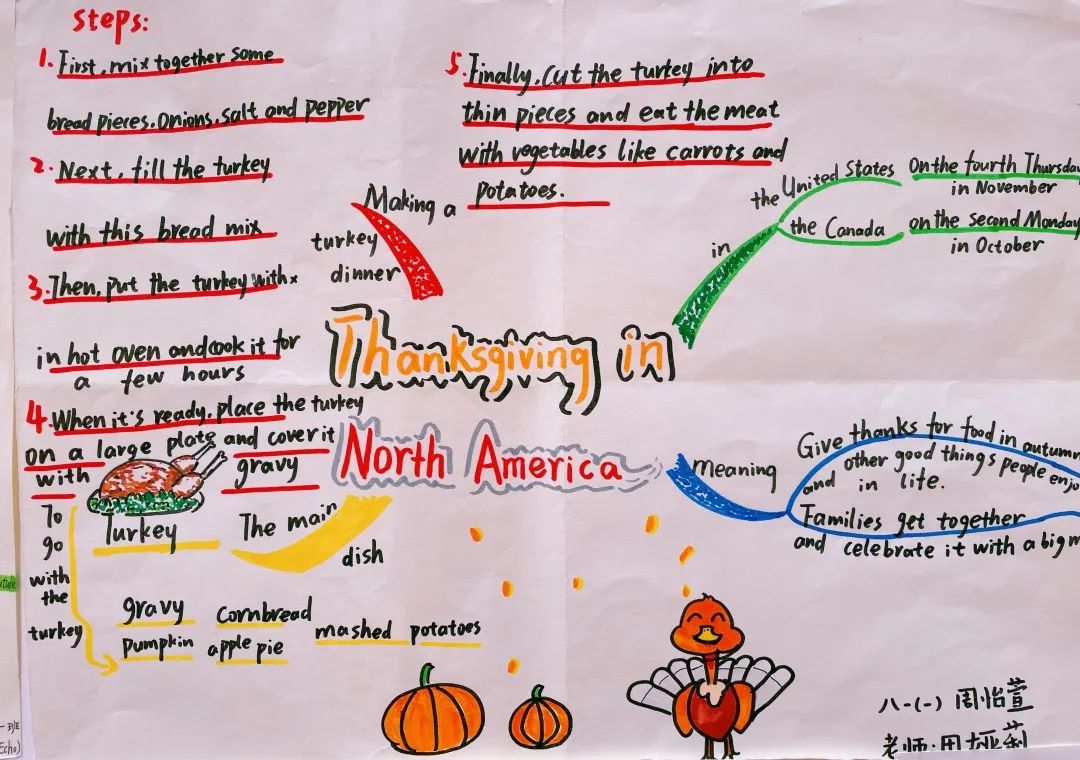 steps:
1. First, mix together some
bread pieces, onions, salt and pepper
2. Next, fill the turkey
with this bread mix
3. Then, put the turkey with
in hot oven and cook it for
a few hours
4. When it's ready, place the turkey
on a large plate and cover it
with gravy
5. Finally, cut the turkey into
thin pieces and eat the meat
with vegetables like carrots and
potatoes.
Making a
turkey
dinner
in
the United States
On the fourth Thursday
in November
the Canada
on the second Monday
in October
Thanksgiving in
North America
meaning
Give thanks for food in autumn
and other good things people enjo
in life.
Families get together
and celebrate it with a big m
The main
dish
Turkey
To
go
with
the
turkey
gravy cornbread mashed potatoes
pumpkin apple pie
八·(一) 周怡萱
老师:
一班
Echo)